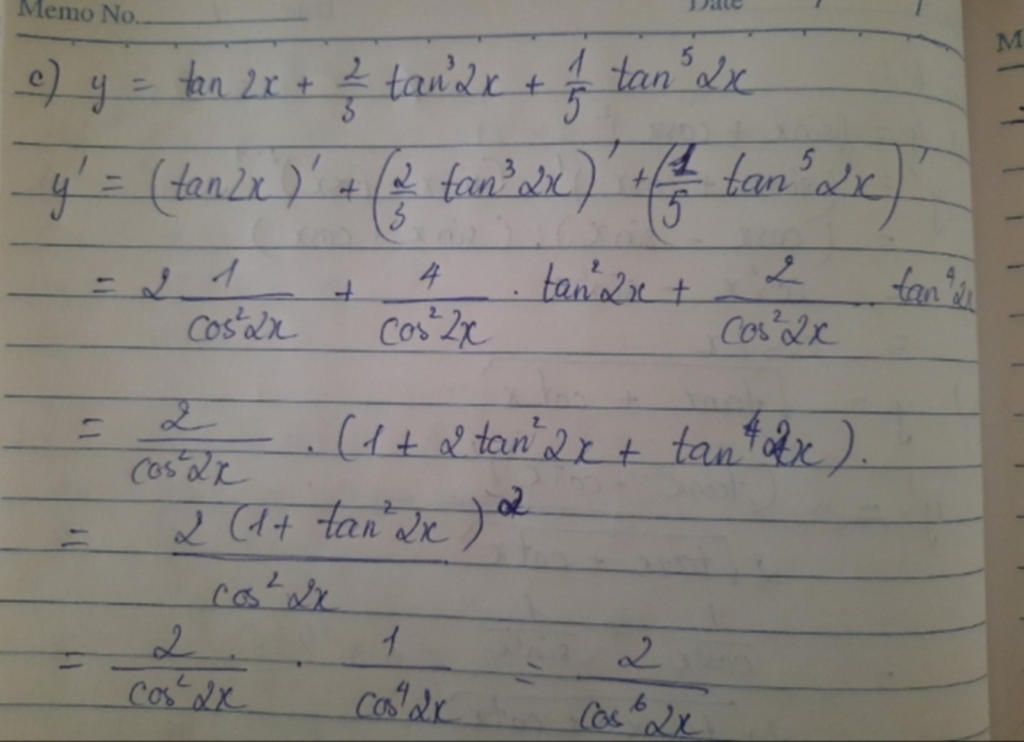 Memo No.
Date
c) y = tan 2x + 2/3 tan³2x + 1/5 tan⁵ 2x
y' = (tan2x)' + (2/3 tan³ 2x)' + (1/5 tan⁵ 2x)'
= 2 1/cos²2x + 4/cos²2x · tan²2x + 2/cos²2x · tan⁴2x
= 2/cos²2x · (1 + 2tan²2x + tan⁴2x).
= 2(1 + tan²2x)²/cos²2x
= 2/cos²2x · 1/cos⁴2x = 2/cos⁶2x